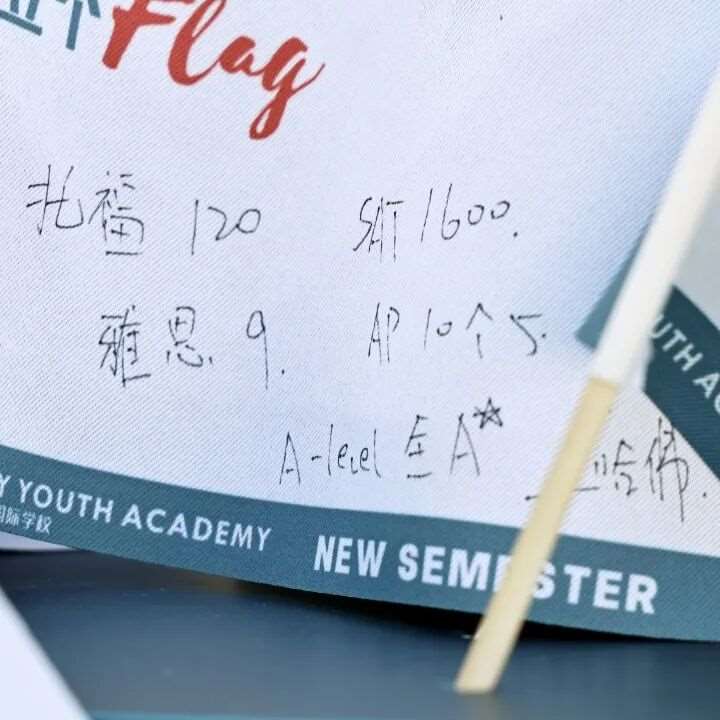 立个Flag
托福 120 SAT 1600.
雅思 9. AP 10个5.
A-level 全A☆
上哈佛.
Y YOUTH ACADEMY
国际学校
NEW SEMESTER
UTH AC